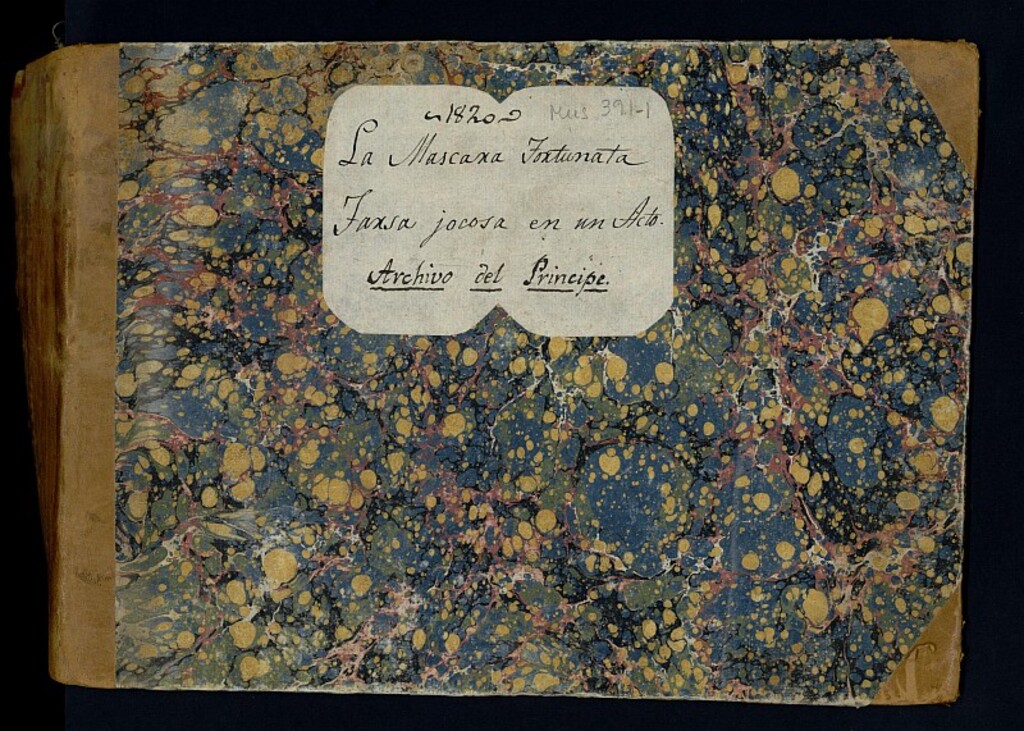 ~1820~ Mus 391-1
La Mascara Fortunata
Farsa jocosa en un Acto.
Archivo del Principe.